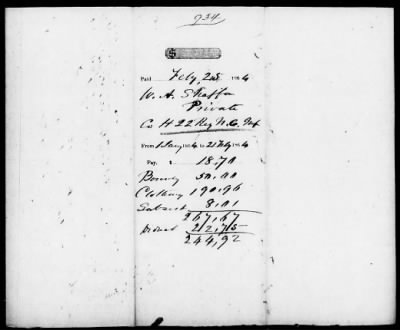 934
$
Paid Feby 2d 1864
W. A. Steffa
Private
Co H 22 Reg N. C. Inf
From 1 Jany 1864 to 21 Feby 1864
Pay. $ 18.70
Bounty 50.00
Clothing 190.96
Subsist 8.01
267,67
22,75
244,92